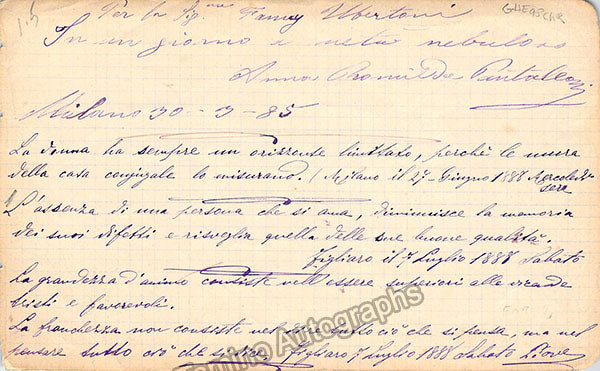 1.5
GHEASCHR
Per la Sig.na Fanny Ubertoni
In un giorno a metà nebuloso
Anna Romilde Pantaleoni
Milano 30 - 3 - 85
La donna ha sempre un orizzonte limitato, perchè le mura
della casa conjugale lo misurano. (Milano il 27 - Giugno 1888 Mercoledì
sera
L'assenza di una persona che si ama, diminuisce la memoria
dei suoi difetti e risveglia quella delle sue buone qualità.
Figliaro il 7 Luglio 1888 Sabato
La grandezza d'animo consiste nell'essere superiori alle vicende
tristi e favorevoli.
La franchezza non consiste nel dire tutto ciò che si pensa, ma nel
pensare tutto ciò che si dice. Figliaro 7 Luglio 1888 Sabato Piove
Tamino Autographs